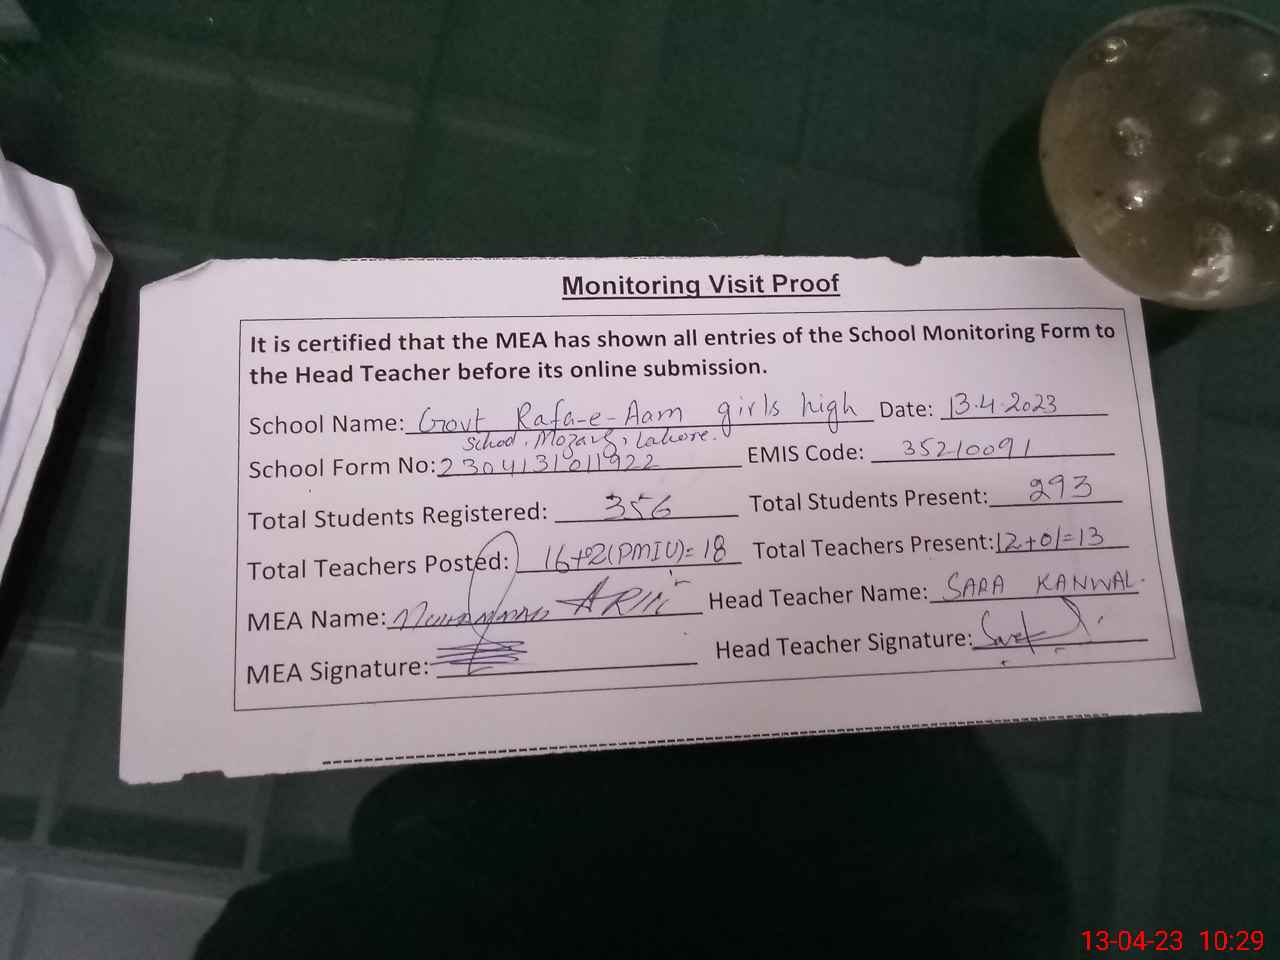 Monitoring Visit Proof
It is certified that the MEA has shown all entries of the School Monitoring Form to
the Head Teacher before its online submission.
School Name: Govt Rafa-e-Aam girls high Date: 13.4.2023
School, Mozang, Lahore.
School Form No: 2304131011922 EMIS Code: 35210091
Total Students Registered: 356 Total Students Present: 293
Total Teachers Posted: 16+02(PMIU)=18 Total Teachers Present: 12+01=13
MEA Name: Head Teacher Name: SARA KANWAL.
MEA Signature: Head Teacher Signature:
13-04-23 10:29